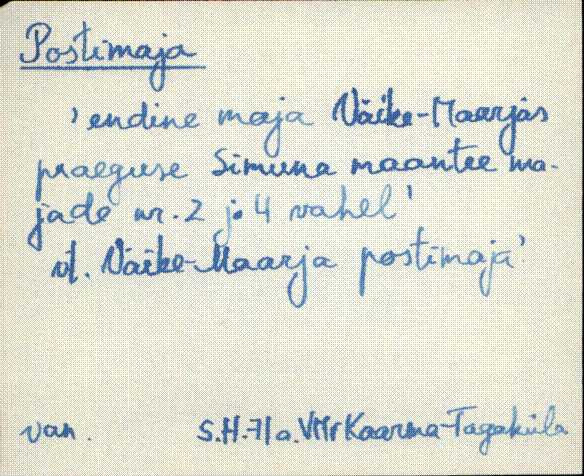 Postimaja
'endine maja Väike-Maarjas
praeguse Simuna maantee ma-
jade nr. 2 ja 4 vahel'
vt. Väike-Maarja postimaja'
van. S.H.-71a. VMr Kaarma-Tagaküla